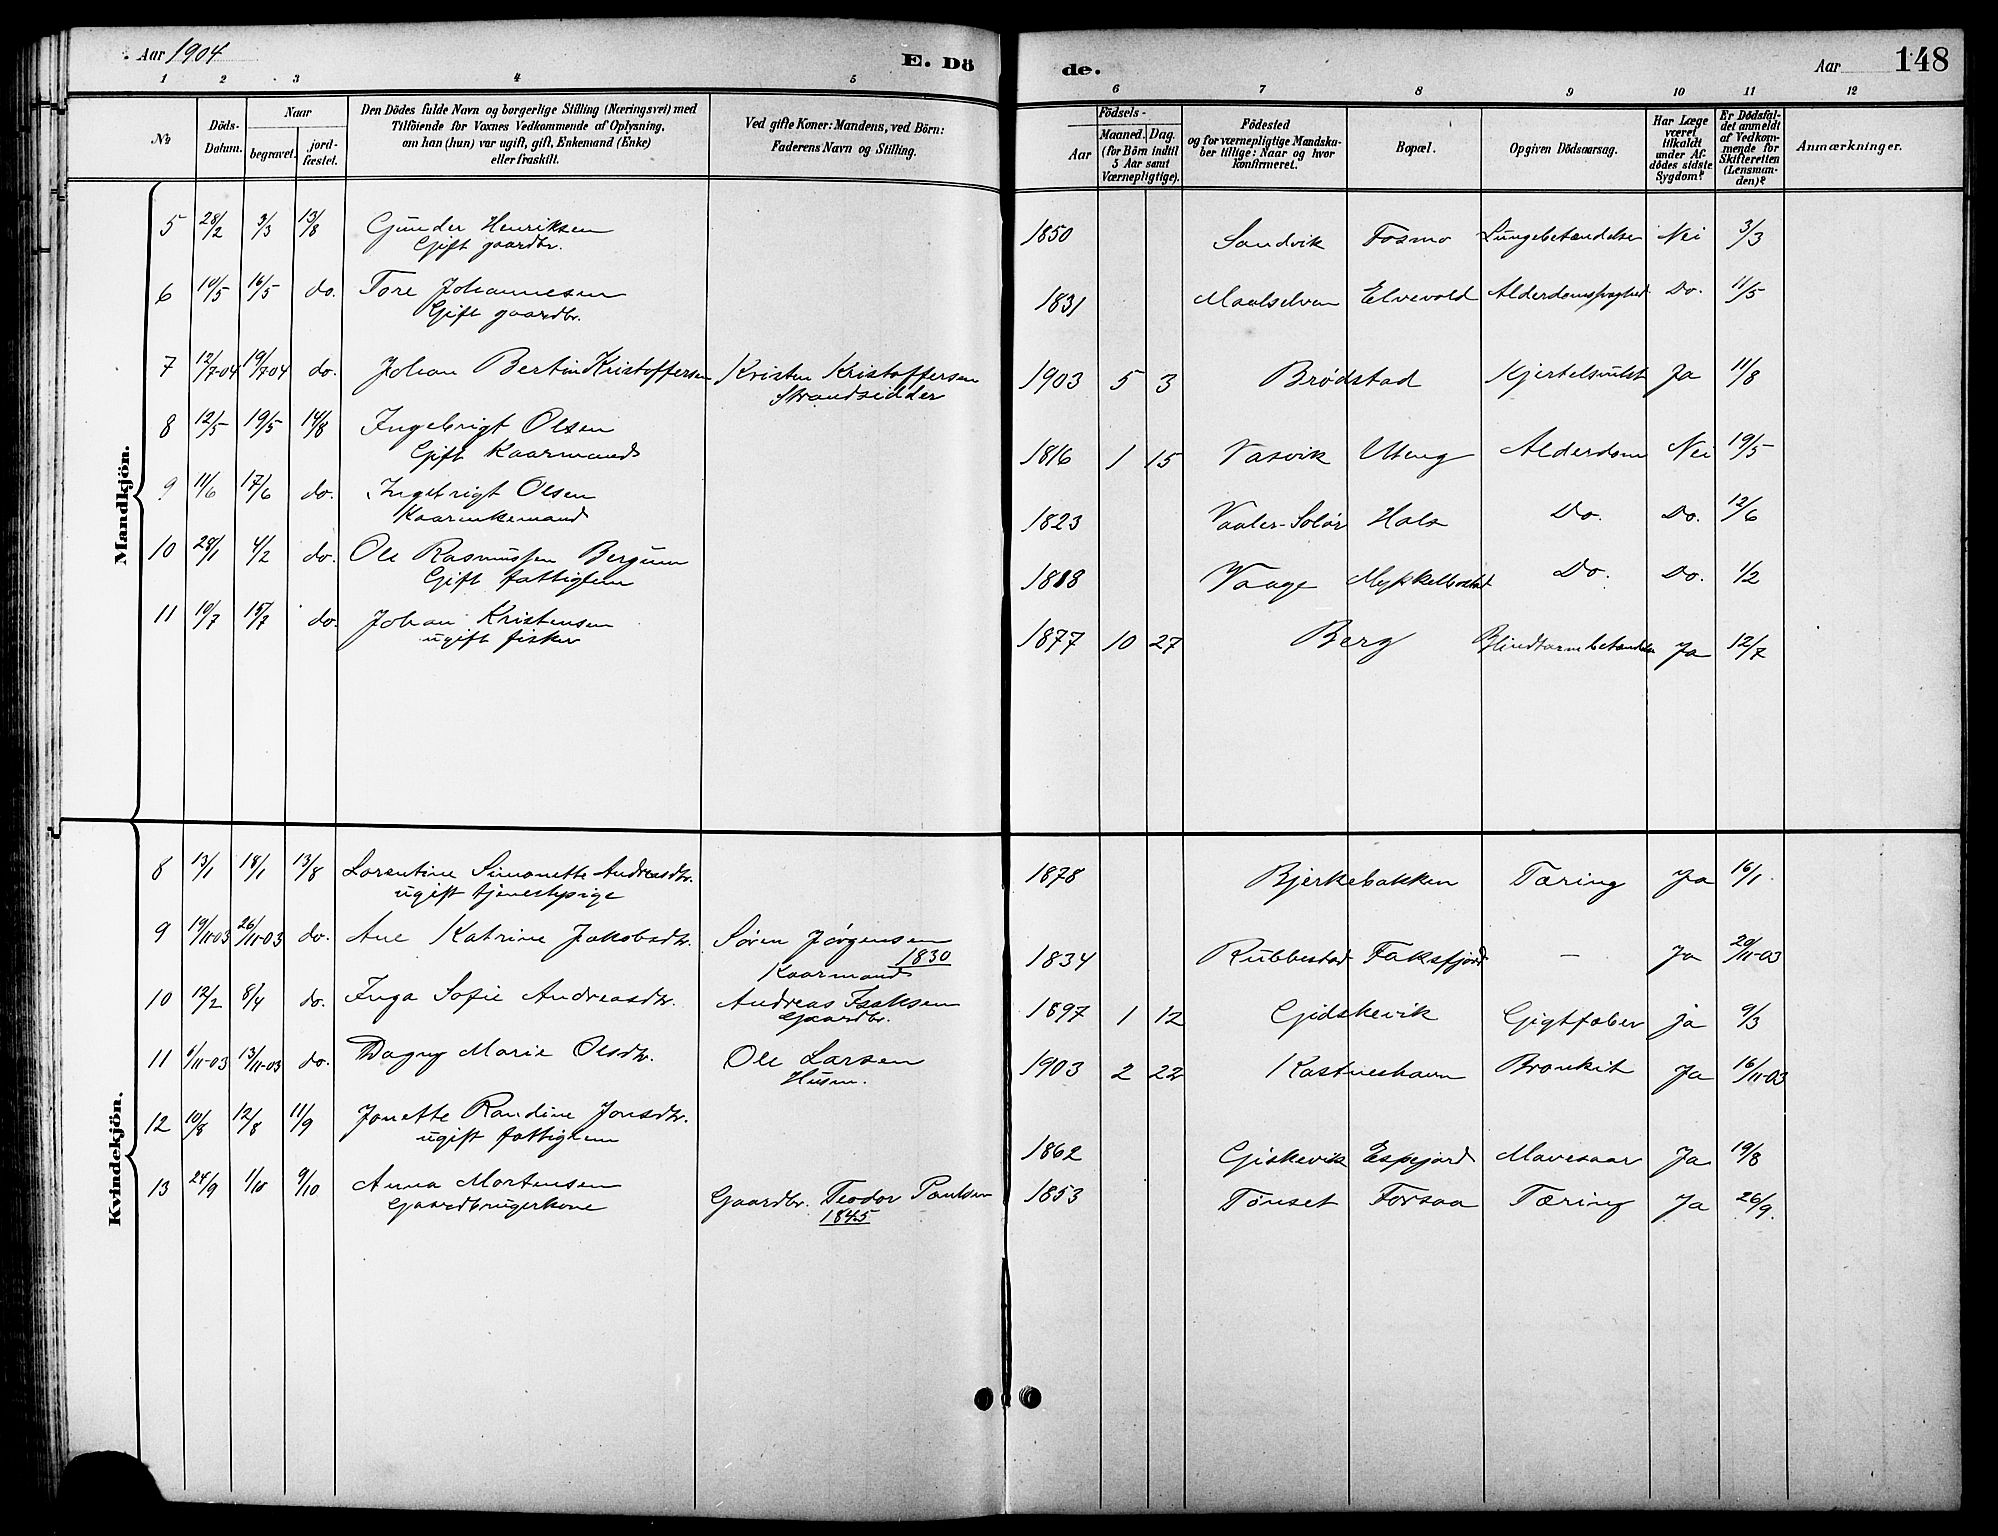 Aar 1904
E. Dö
de.
Aar
148
1 2 3 4 5
6 7 8 9 10 11 12
No
Döds-Datum.
Naar
begravet.
jord-fæstet.
Den Dödes fulde Navn og borgerlige Stilling (Næringsvei) med
Tilföiende for Voxnes Vedkommende af Oplysning,
om han (hun) var ugift, gift, Enkemand (Enke)
eller fraskilt.
Ved gifte Koner: Mandens, ved Börn:
Faderens Navn og Stilling.
Födsels-
Aar
Maaned. Dag.
(for Börn indtil
5 Aar samt
Værnepligtige).
Födested
og for værnepligtige Mandska-
ber tillige: Naar og hvor
konfirmeret.
Bopæl.
Opgiven Dödsaarsag.
Har Læge
været
tilkaldt
under Af-
dödes sidste
Sygdom?
Er Dödsfal-
det anmeldt
af Vedkom-
mende for
Skifteretten
(Lensman-
den)?
Anmærkninger.
Mandkjön.
5 28/2 3/3 13/8 Gunder Henriksen 1850 Sandvik Fosmo Lungebetændelse Nei 3/3
Gift gaardbr.
6 10/5 16/5 do. Tore Johannesen 1831 Maalselven Elvevold Alderdomssvaghed Do. 11/5
Gift gaardbr.
7 12/7-04 19/7-04 do. Johan Bertin Kristoffersen Kristen Kristoffersen 1903 5 3 Brødstad Kjertelsvulst Ja 11/8
Strandsidder
8 12/5 19/5 14/8 Ingebrigt Olsen 1816 1 15 Vasvik Uteng Alderdom Nei 19/5
Gift Kaarmand
9 11/6 17/6 do. Ingebrigt Olsen 1823 Vaaler-Solør Hals Do. Do. 12/6
Kaarenkemand
10 28/1 4/2 do. Ole Rasmussen Bergum 1818 Vaage Mykkelbostad Do. Do. 1/2
Gift fattiglem
11 10/7 15/7 do. Johan Kristensen 1877 10 27 Berg Blindtarmbetændelse Ja 12/7
ugift fisker
Kvindekjön.
8 13/1 18/1 13/8 Lorentine Simonette Andreasdtr. 1878 Bjerkebakken Tæring Ja 16/1
ugift tjenestepige
9 19/11-03 26/11-03 do. Ane Katrine Jakobsdtr. Søren Jørgensen 1834 Rubbestad Faksfjord — Ja 20/11-03
1830
Kaarmand
10 12/2 8/4 do. Inga Sofie Andreasdtr. Andreas Isaksen 1897 1 12 Gidskevik Gigtfeber ja 9/3
Gaardbr.
11 6/11-03 13/11-03 do. Dagny Marie Olsdtr. Ole Larsen 1903 2 22 Kastneshavn Bronkit Ja 16/11-03
Husm.
12 10/8 12/8 11/9 Jonette Randine Jonsdtr. 1862 Giskevik Espejord Mavesaar Ja 19/8
ugift fattiglem
13 24/9 1/10 9/10 Anna Mortensen Gaardbr. Teodor Paulsen 1853 Tønset Forsaa Tæring Ja 26/9.
Gaardbrugerkone 1845